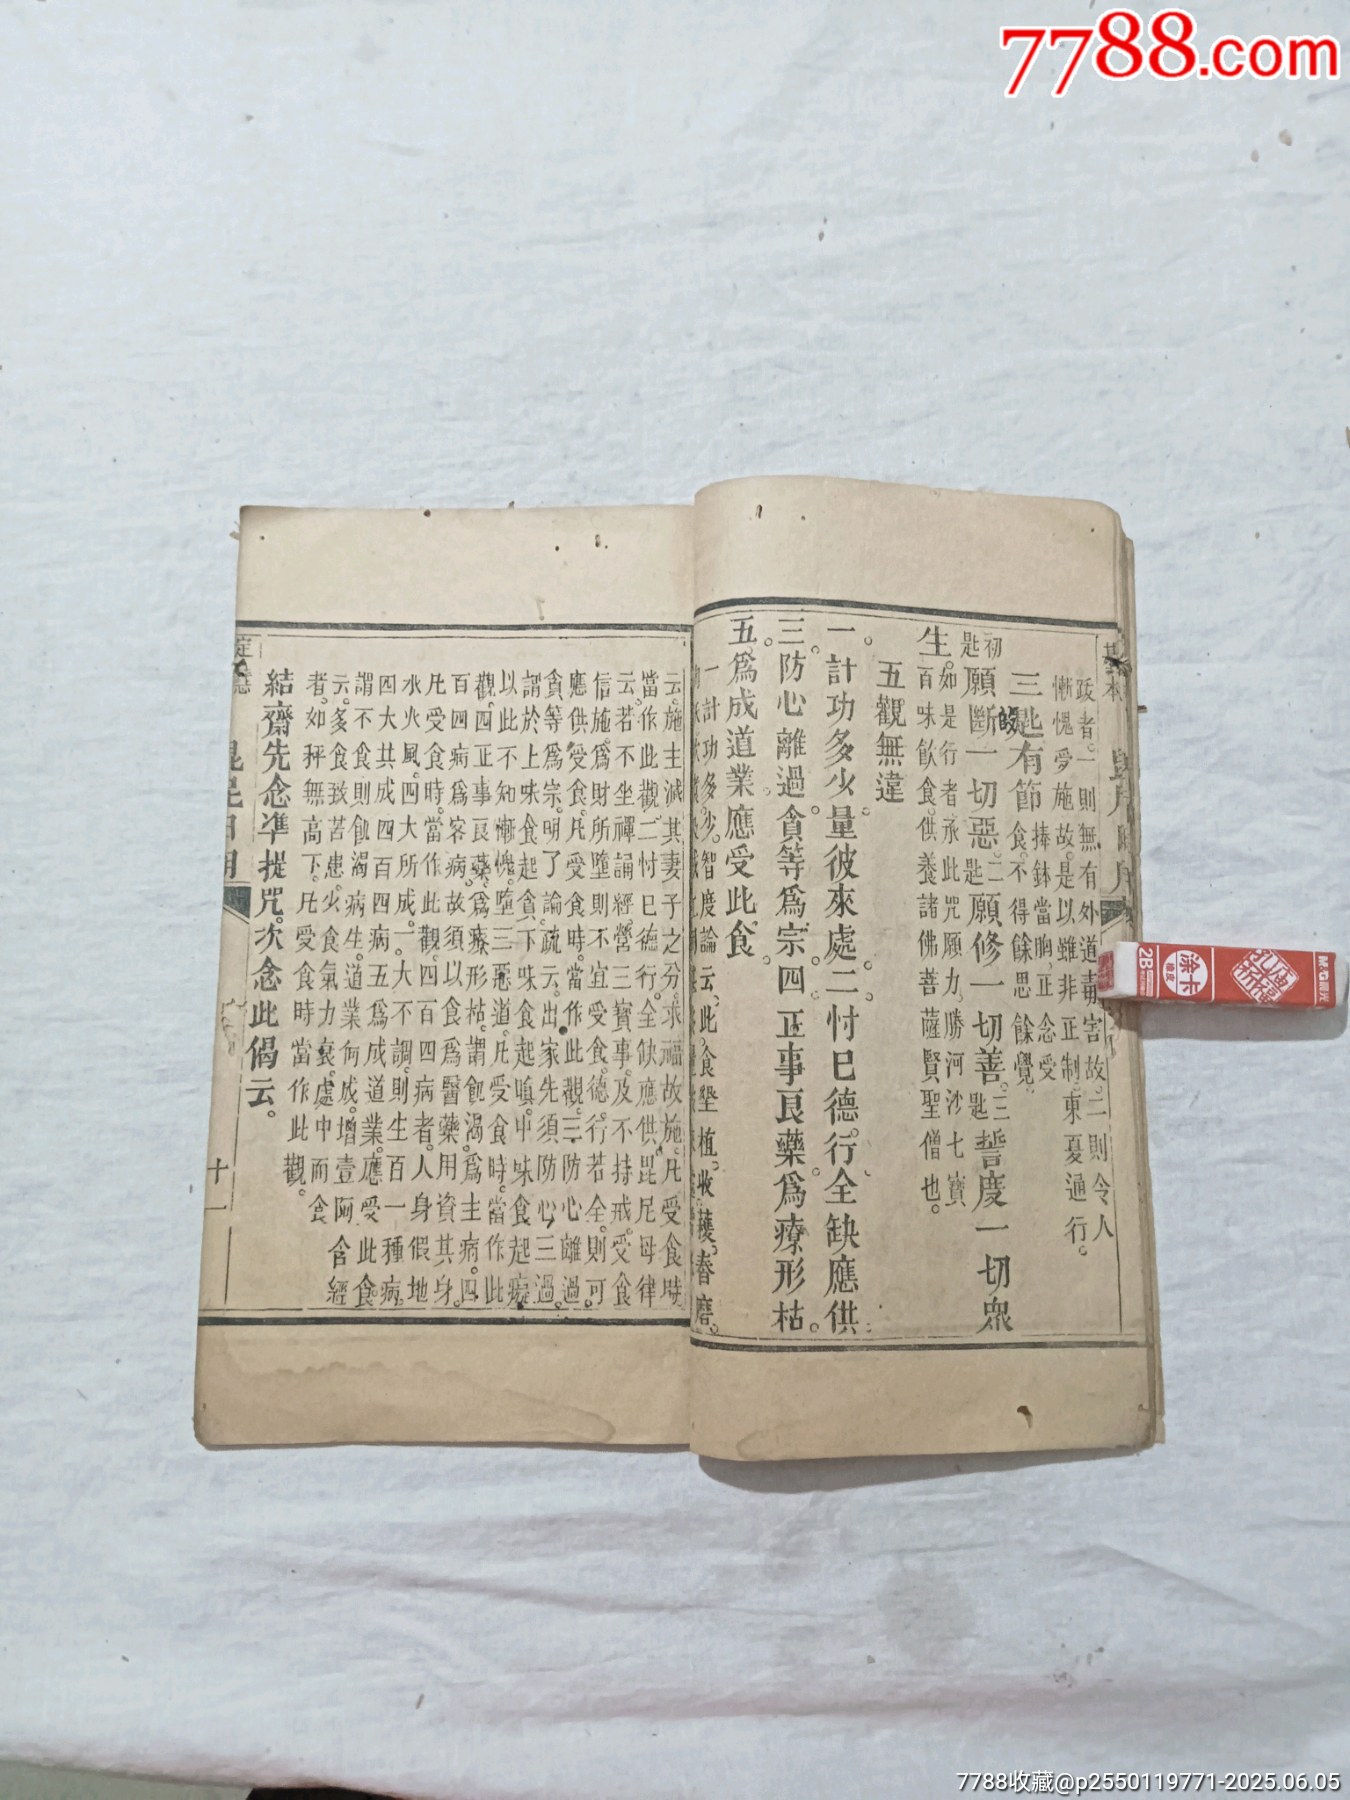 7788.com
跂者。一則無有外道毒害故。二則令人
慚愧受施故。是以雖非正制。東夏通行。
三匙有節捧鉢當胸正念受
食。不得餘思餘覺。
初匙願斷一切惡。二匙願修一切善。三匙誓度一切眾
生。如是行者承此咒願力。勝河沙七寶
百味飲食。供養諸佛菩薩賢聖僧也。
五觀無違
一。計功多少。量彼來處。二忖已德。行全缺應供。
三。防心離過。貪等為宗。四正事良藥。為療形枯。
五。為成道業。應受此食。
一計功多少。智度論云。此食墾植。收穫。舂磨。
云。施主減其妻子之分。求福故施。凡受食時
當作此觀。二忖已德行。全缺應供。毘尼母律
云。若不坐禪誦經。營三寶事。及不持戒。受食
信施。為財所墮。則不宜受食。德行若全。則可
應供受食。凡受食時。當作此觀。三防心離過。
貪等為宗。明了論疏云。出家先須防心三過。
謂於上味食起貪。下味食起嗔。中味食起癡。
以此不知慚愧。墮三惡道。凡受食時。當作此
觀。四正事良藥。為療形枯。謂飢渴為主病。四
百四病為客病。故須以食為醫藥。用資其身。
凡受食時。當作此觀。四百四病者。人身假地
水火風。四大所成。一大不調。則生百一種病。
四大共成四百四病。五為成道業。應受此食。
謂不食則飢渴病生。道業何成。增壹阿含經
云。多食致苦患。少食氣力衰。處中而食
者。如秤無高下。凡受食時當作此觀。
結齋先念準提咒。次念此偈云。
十一
2B 涂卡 M&G晨光
7788收藏@p2550119771-2025.06.05